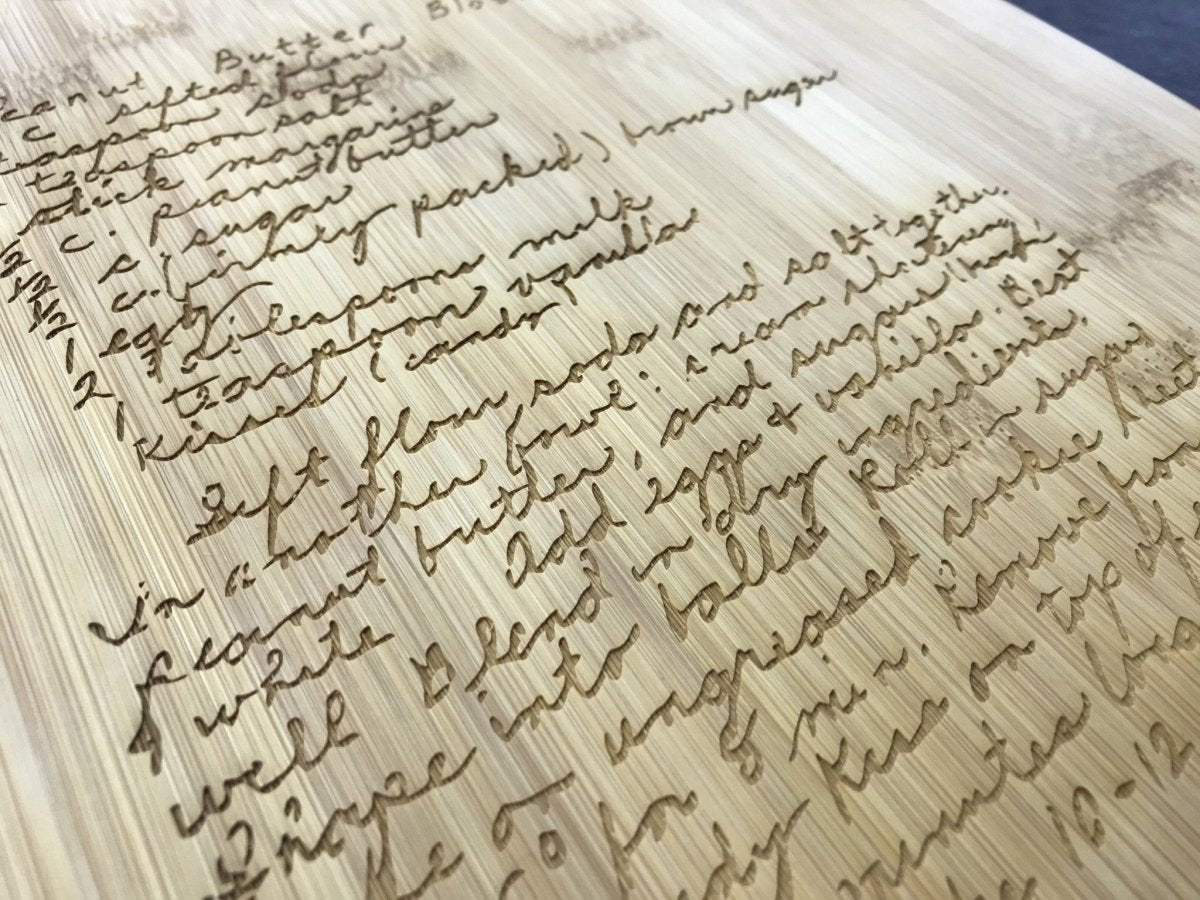 Peanut Butter Blo
c sifted flour
teaspoon soda
teaspoon salt
stick margarine
1/2 c. peanut butter
1/2 c. sugar
1/2 c. (firmly packed) brown sugar
1 egg
2 tablespoons milk
1 teaspoon vanilla
Kisses (candy
Sift flour soda and salt together.
in another bowl: cream shortening,
peanut butter, and sugars (brown,
white Add eggs & vanilla. Beat
well Blend in dry ingredients.
Shape into balls Roll in sugar
ungreased cookie sheet
for 8 min. Remove from
Kiss on top of
minutes
10-12